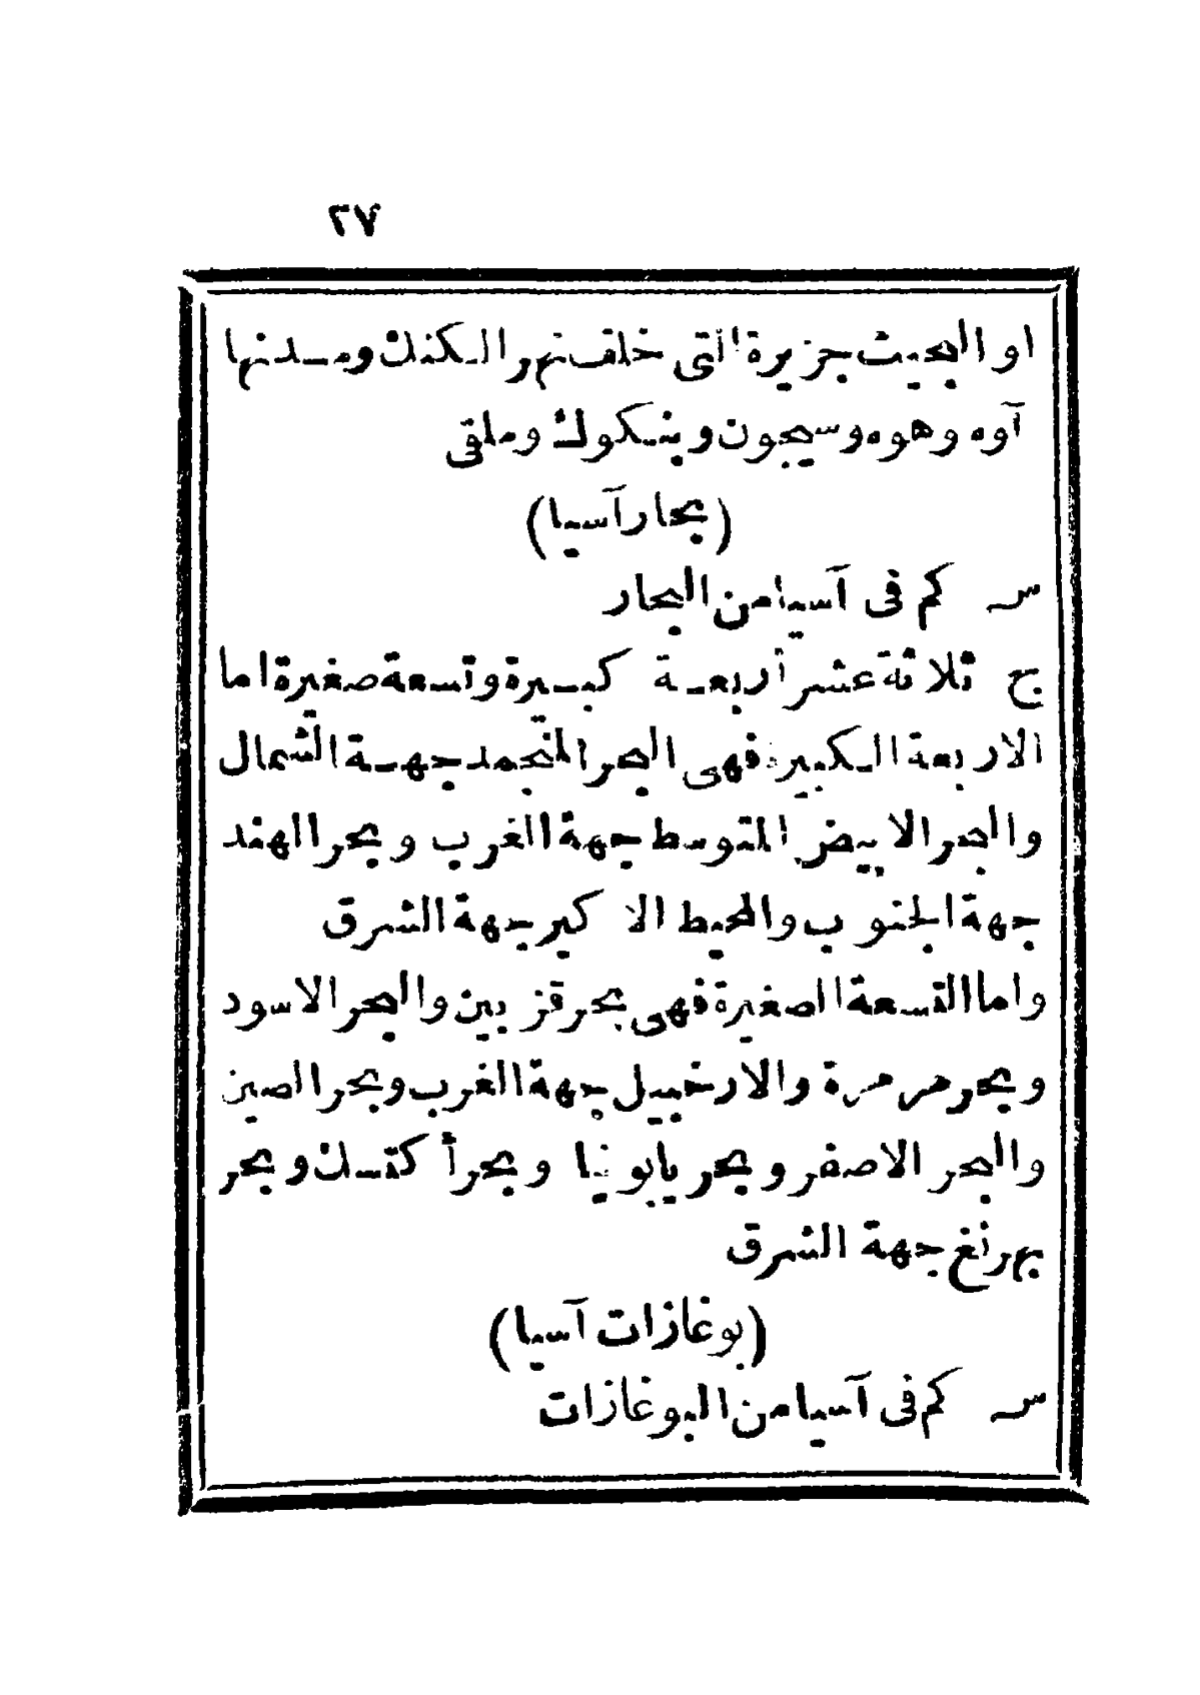 ٢٧
او البحيث جزيرة التى خلف نهر الكنك ومدنها
آوه وهوه وسيجون وبنكوك وملقى
(بحار آسيا)
س كم فى آسيا من البحار
ج ثلاثة عشر أربعة كبيرة وتسعة صغيرة اما
الاربعة الكبيرة فهى البحر المنجمد جهة الشمال
والبحر الابيض المتوسط جهة الغرب وبحر الهند
جهة الجنوب والمحيط الاكبر جهة الشرق
واما التسعة الصغيرة فهى بحر قزبين والبحر الاسود
وبحر مرمرة والارخبيل جهة الغرب وبحر الصين
والبحر الاصفر وبحر يابونيا وبحر أكتسك وبحر
بهرنغ جهة الشرق
(بوغازات آسيا)
س كم فى آسيا من البوغازات